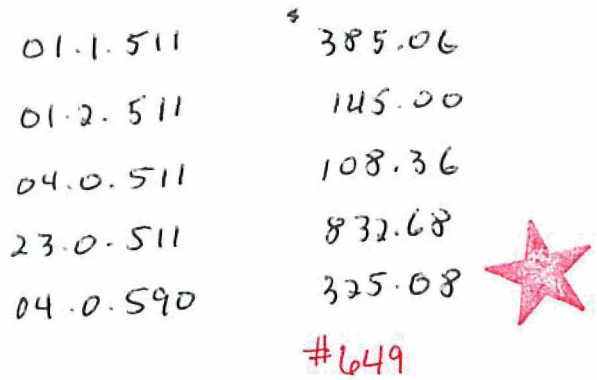 01.1.511 $ 385.06
01.2.511 145.00
04.0.511 108.36
23.0.511 832.68
04.0.590 325.08
#649